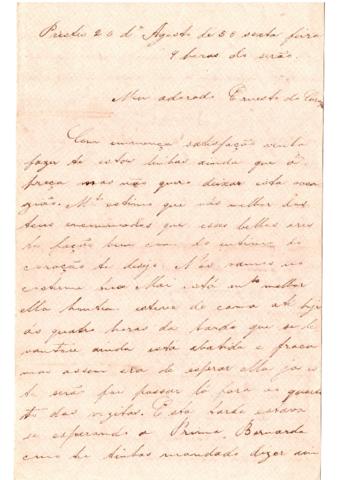 20 d' Agosto de sexta feira
9 horas do serão.
Meu adorado Ernesto do Cora
Com immença satisfação venho
fazer te estas linhas ainda que á
preça mas não quero deixar esta occa
zião. M.to estimo que vás melhor dos
teus encommodos que esses bellos ares
te fação bem como do intimo do
coração te desejo. Nós vamos no
costume tua Mãi está m.to melhor
ella hontem esteve de cama até hoje
ás quatro horas da tarde que se le
vantou ainda esta abatida e fraca
mas assim era de esperar ella ja es
te serão foi passar lo para o quar
to das vizitas. Esta tarde estava
se esperando a Prima Bernarda
como tinhas mandado dizer